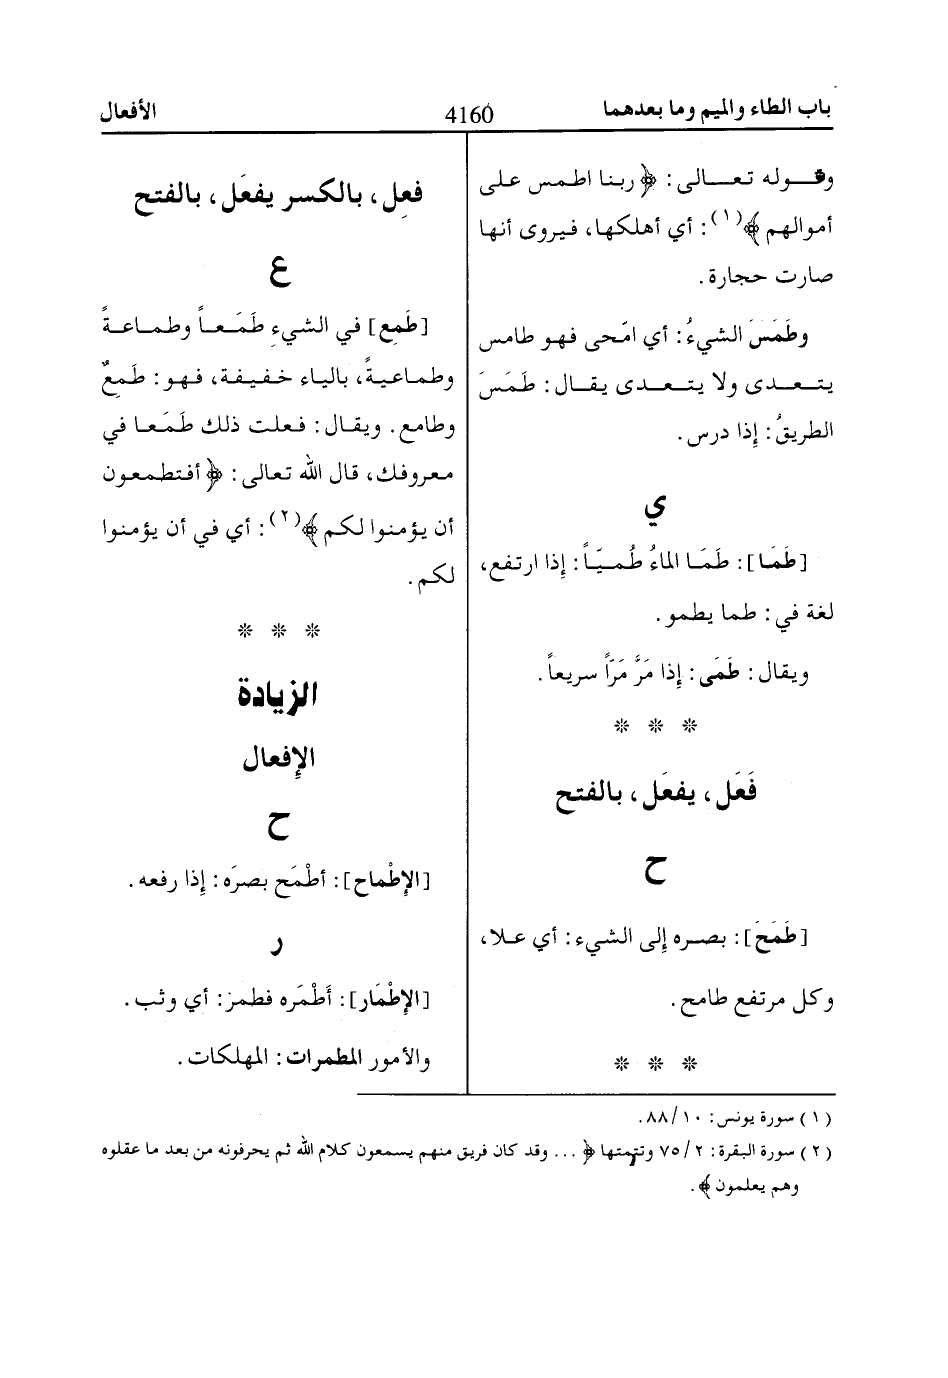 باب الطاء والميم وما بعدهما
4160
الأفعال
وقوله تعالى: ﴿ ربنا اطمس على
أموالهم ﴾(١): أي أهلكها، فيروى أنها
صارت حجارة.
وطَمَسَ الشيءُ: أي امّحى فهو طامس
يتعدى ولا يتعدى يقال: طَمَسَ
الطريقُ: إذا درس.
ي
[طَمَا]: طَمَا الماءُ طُميّاً: إذا ارتفع،
لغة في: طما يطمو.
ويقال: طَمَى: إذا مَرَّ مَرّاً سريعاً.
* * *
فَعَل، يفعَل، بالفتح
ح
[طَمَحَ]: بصره إلى الشيء: أي علا،
وكل مرتفع طامح.
* * *
فعِل، بالكسر يفعَل، بالفتح
ع
[طَمِع] في الشيءِ طَمَعاً وطماعةً
وطماعيةً، بالياء خفيفة، فهو: طَمِعٌ
وطامع. ويقال: فعلت ذلك طَمَعا في
معروفك، قال الله تعالى: ﴿ أفتطمعون
أن يؤمنوا لكم ﴾(٢): أي في أن يؤمنوا
لكم.
* * *
الزيادة
الإفعال
ح
[الإطْماح]: أطْمَح بصرَه: إذا رفعه.
ر
[الإطْمَار]: أَطْمَره فطمز: أي وثب.
والأمور المطمرات: المهلكات.
(١) سورة يونس: ١٠/ ٨٨.
(٢) سورة البقرة: ٢/ ٧٥ وتتمتها ﴿ ... وقد كان فريق منهم يسمعون كلام الله ثم يحرفونه من بعد ما عقلوه
وهم يعلمون ﴾.